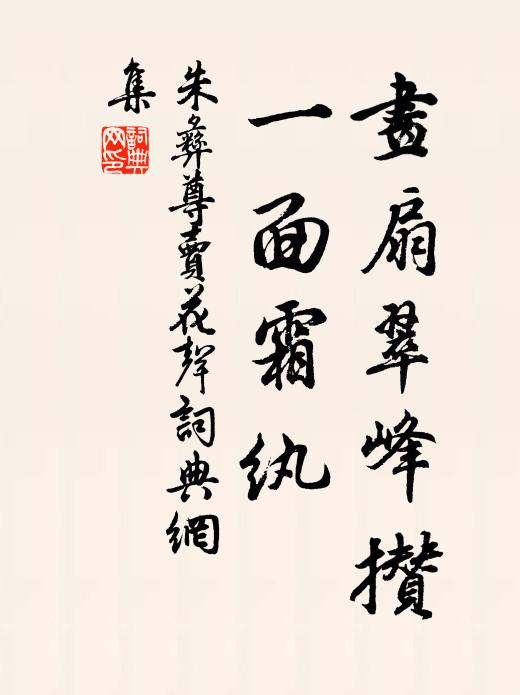 畫扇翠峰攢
一面霜紈
朱彝尊賣花聲詞典網
集
詞典網印